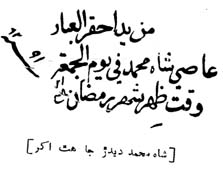 من يد احقر العباد
عاصي شاه محمد في يوم الجمعة
وقت ظهر شهر رمضان
[شاه محمد ديدڙ جا هٿ اکر]